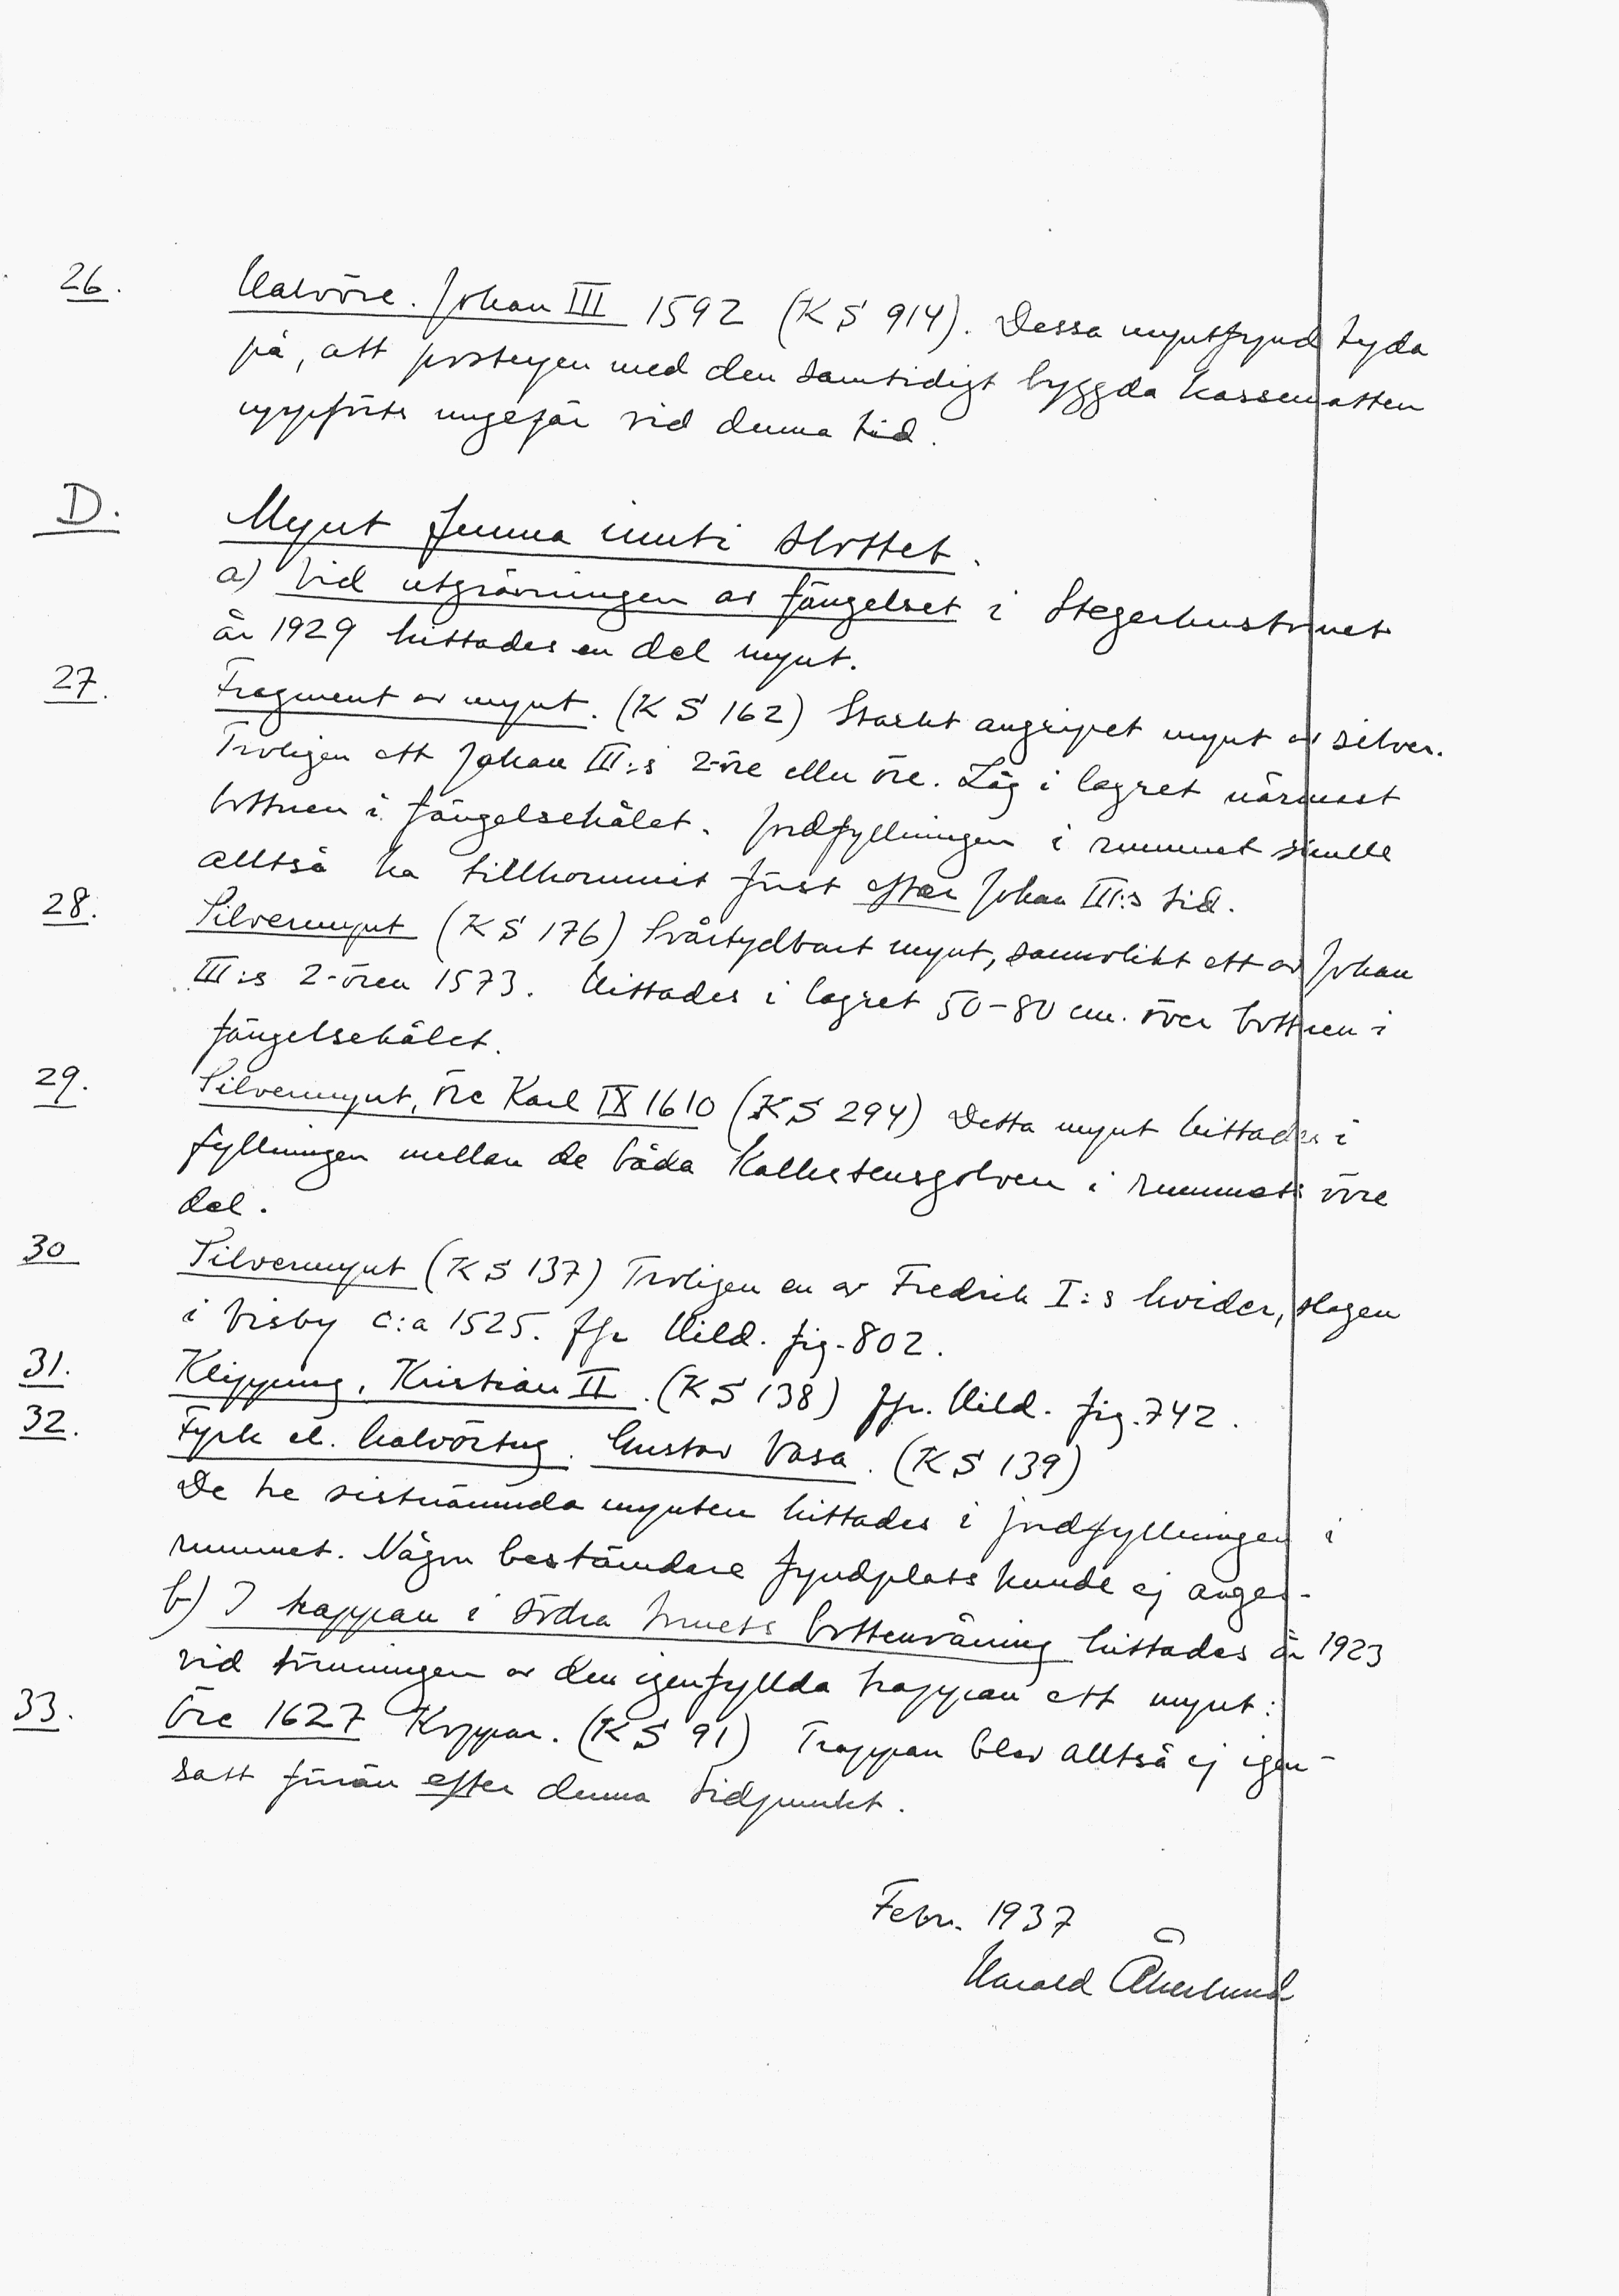 26. Halvöre. Johan III 1592 (KS 914). Dessa myntfynd tyda
på, att posteryen med den samtidigt byggda kassematten
uppförts ungefär vid denna tid.
D. Mynt funna inuti slottet.
a) Vid utgrävningen av fängelset i Stegerhustornet
år 1929 hittades en del mynt.
27. Fragment av mynt. (KS 162) Starkt angripet mynt av silver.
Troligen ett Johan III:s 2-öre eller öre. Låg i lagret närmast
bottnen i fängelsehålet. Jordfyllningen i rummet skulle
alltså ha tillkommit först efter Johan III:s tid.
28. Silvermynt (KS 176) Svårtydbart mynt, sannolikt ett av Johan
III:s 2-ören 1573. Hittades i lagret 50-80 cm. över bottnen i
fängelsehålet.
29. Silvermynt, öre Karl IX 1610 (KS 294) Detta mynt hittades i
fyllningen mellan de båda Kalkstensgolven i rummets övre
del.
30 Silvermynt (KS 137) Troligen en av Fredrik I:s hvider, slagen
i Visby c:a 1525. Jfr Hild. fig. 802.
31. Klipping, Kristian II. (KS 138) Jfr. Hild. fig. 742.
32. Fyrk el. halvörtug. Gustav Vasa. (KS 139)
De tre sistnämnda mynten hittades i jordfyllningen i
rummet. Någon bestämdare fyndplats kunde ej anges.
b) I trappan i södra tornets bottenvåning hittades år 1923
vid tömningen av den igenfyllda trappan ett mynt:
33. Öre 1627 Koppar. (KS 91) Trappan blev alltså ej igen-
satt förrän efter denna tidpunkt.
Febr. 1937
Harald Åkerlund